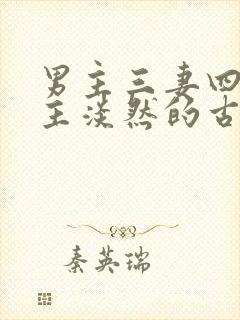 男主三妻四
主淡然的古
秦英瑞